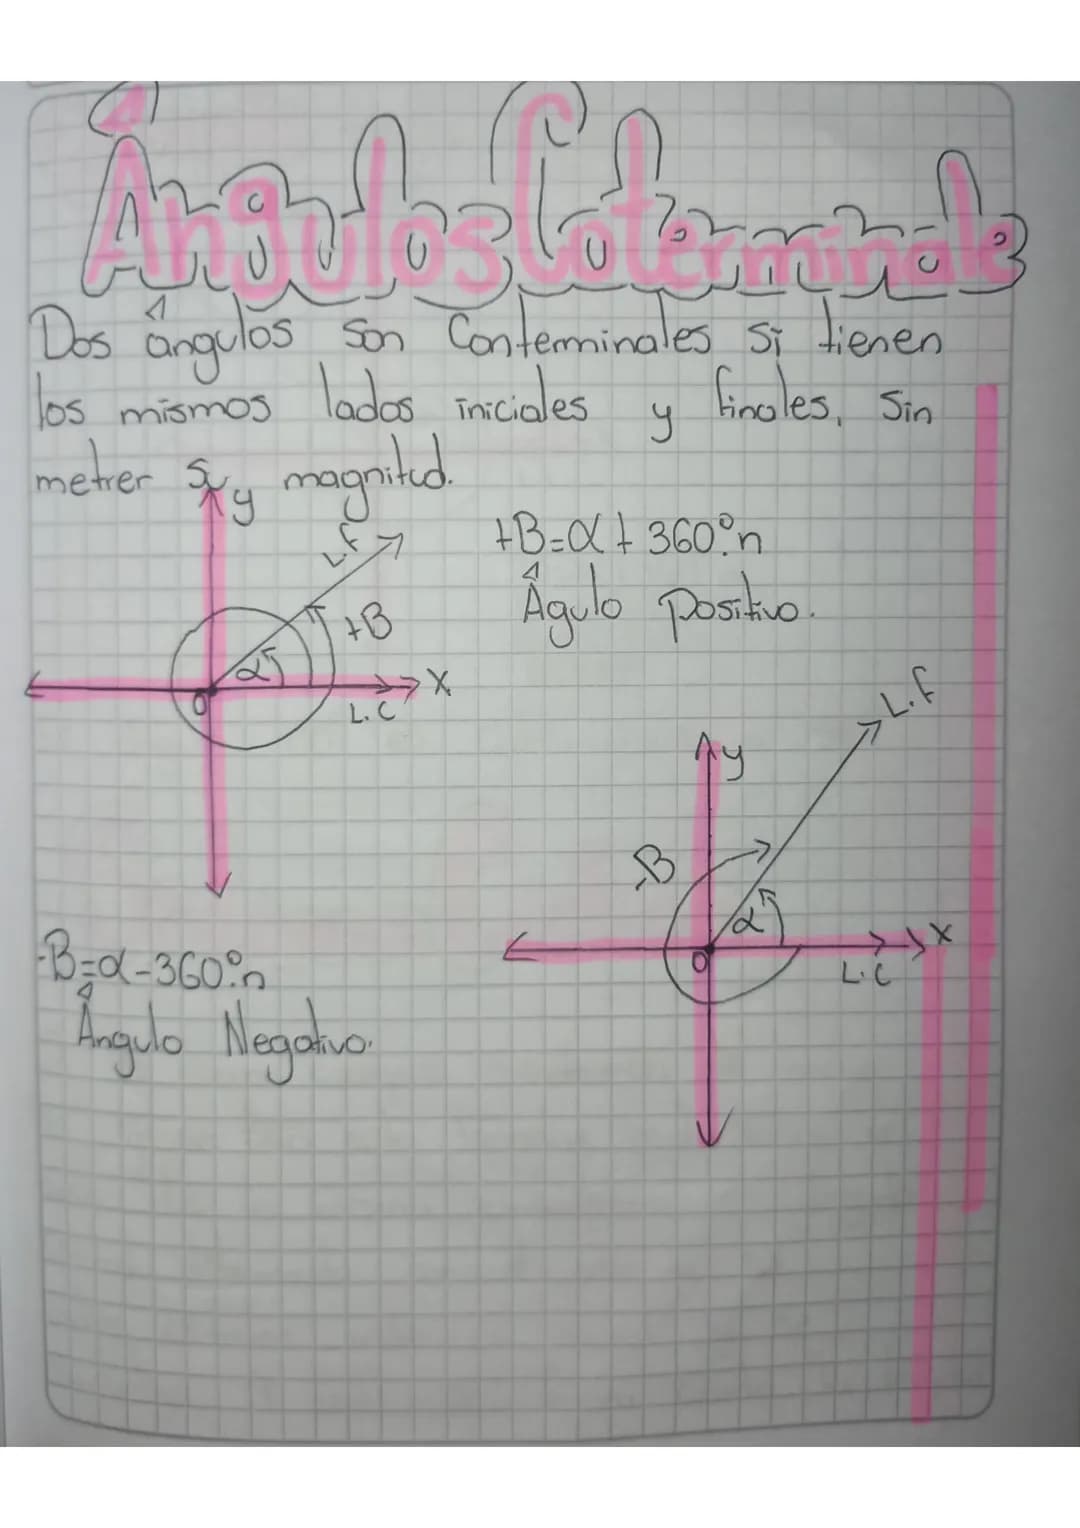 Ángulos Coterminales
Dos ángulos son Conterminales si tienen
los mismos lados iniciales y finales, sin
metrer su magnitud.
y
L.F
+B=α+360°.n
Águlo Positivo.
+B
α
X
0
L.C
L.F
y
-B
α
X
0
L.C
-B=α-360°.n
Ángulo Negativo.